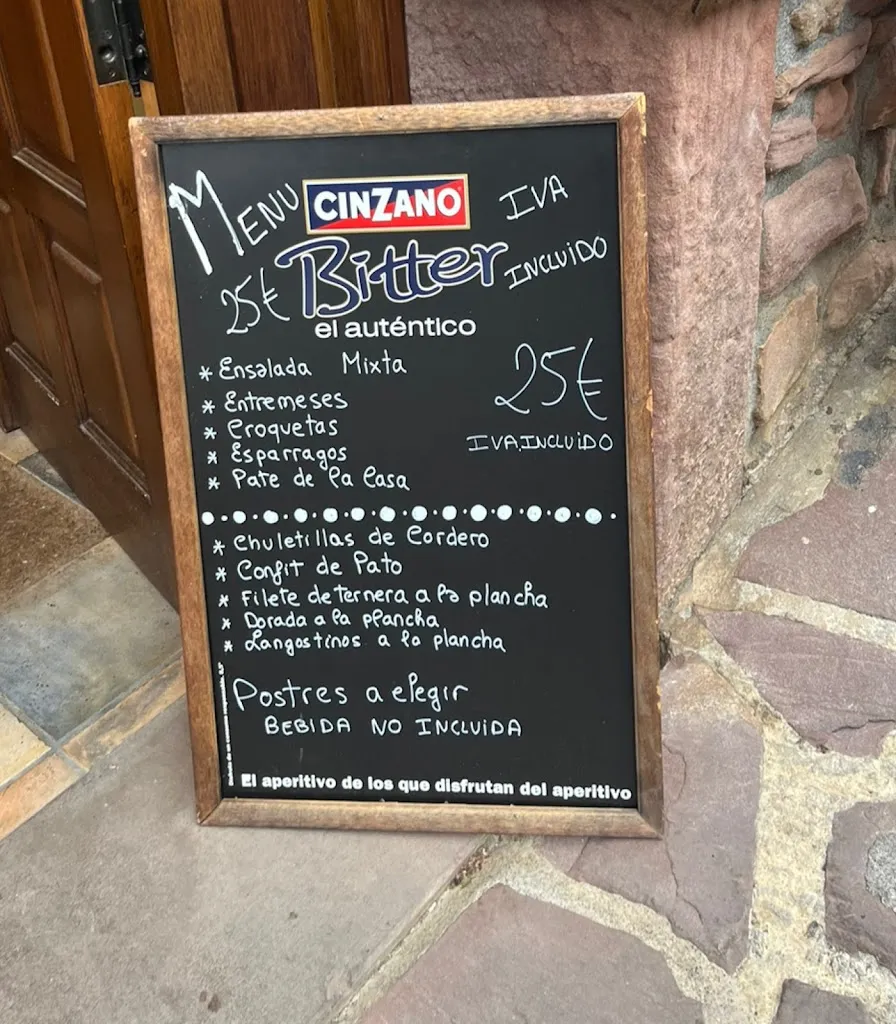 MENU
CINZANO
IVA
INCLUIDO
25€
Bitter
el auténtico
* Ensalada Mixta
* Entremeses
* Croquetas
* Esparragos
* Pate de la Casa
25€
IVA.INCLUIDO
* Chuletillas de Cordero
* Confit de Pato
* Filete de ternera a la plancha
* Dorada a la plancha
* Langostinos a la plancha
Postres a elegir
BEBIDA NO INCLUIDA
El aperitivo de los que disfrutan del aperitivo